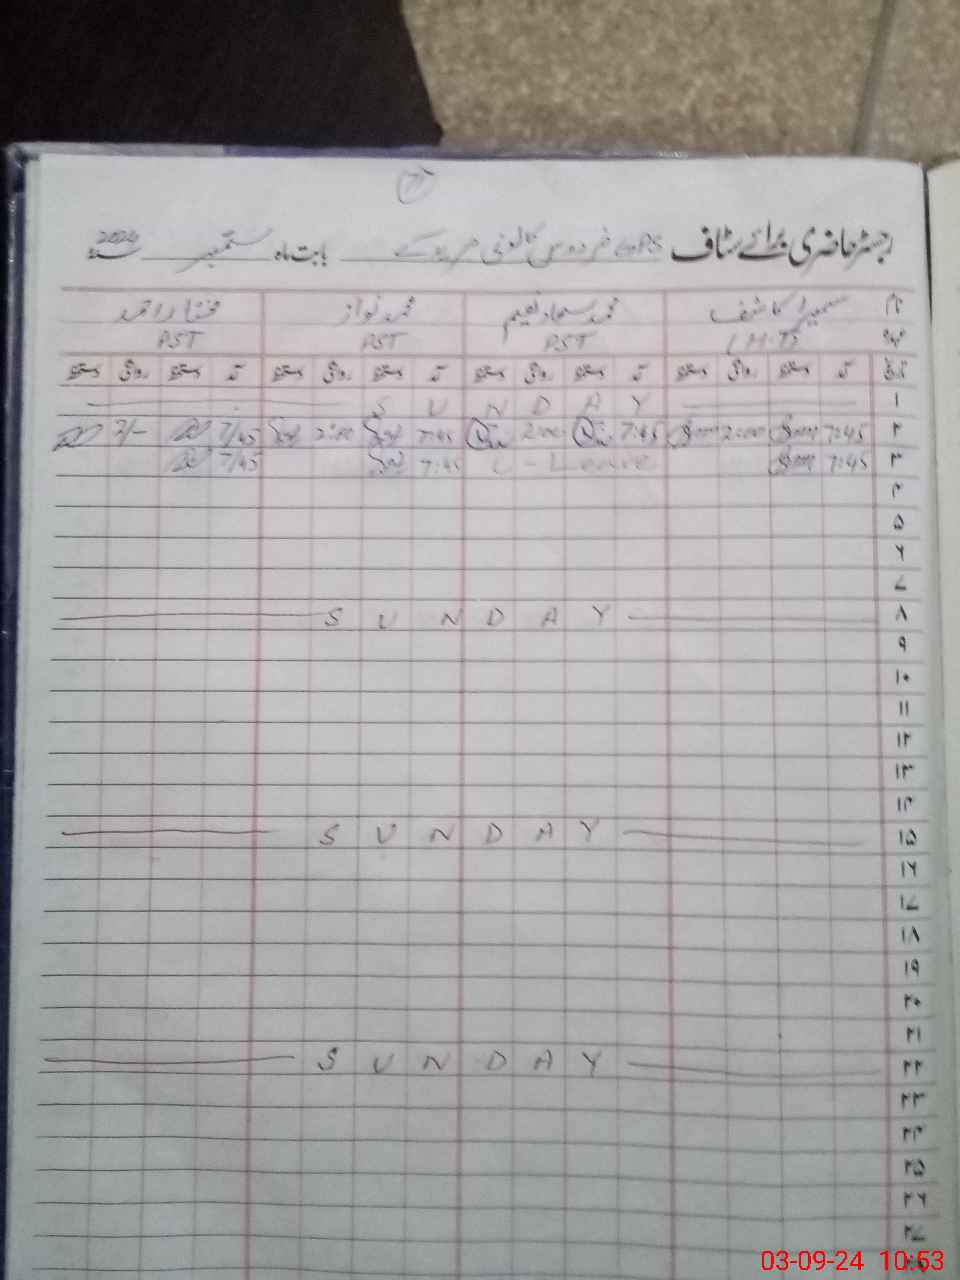 رجسٹر حاضری برائے سٹاف GPS فردوس کالونی بابت ماہ ستمبر سنہ 2024
نام سمیرا کاشف محمد سجاد نعیم محمد نواز مختار احمد
عہدہ PST PST PST
تاریخ آمد دستخط روانگی دستخط آمد دستخط روانگی دستخط آمد دستخط روانگی دستخط آمد دستخط روانگی دستخط
۱ SUNDAY
۲ 7:45 2:00 7:45 2:00 7:45 2:00 7/45 2/-
۳ 7:45 C-Leave 7:45 7/45
۴
۵
۶
۷
۸ SUNDAY
۹
۱۰
۱۱
۱۲
۱۳
۱۴
۱۵ SUNDAY
۱۶
۱۷
۱۸
۱۹
۲۰
۲۱
۲۲ SUNDAY
۲۳
۲۴
۲۵
۲۶
۲۷
03-09-24 10:53